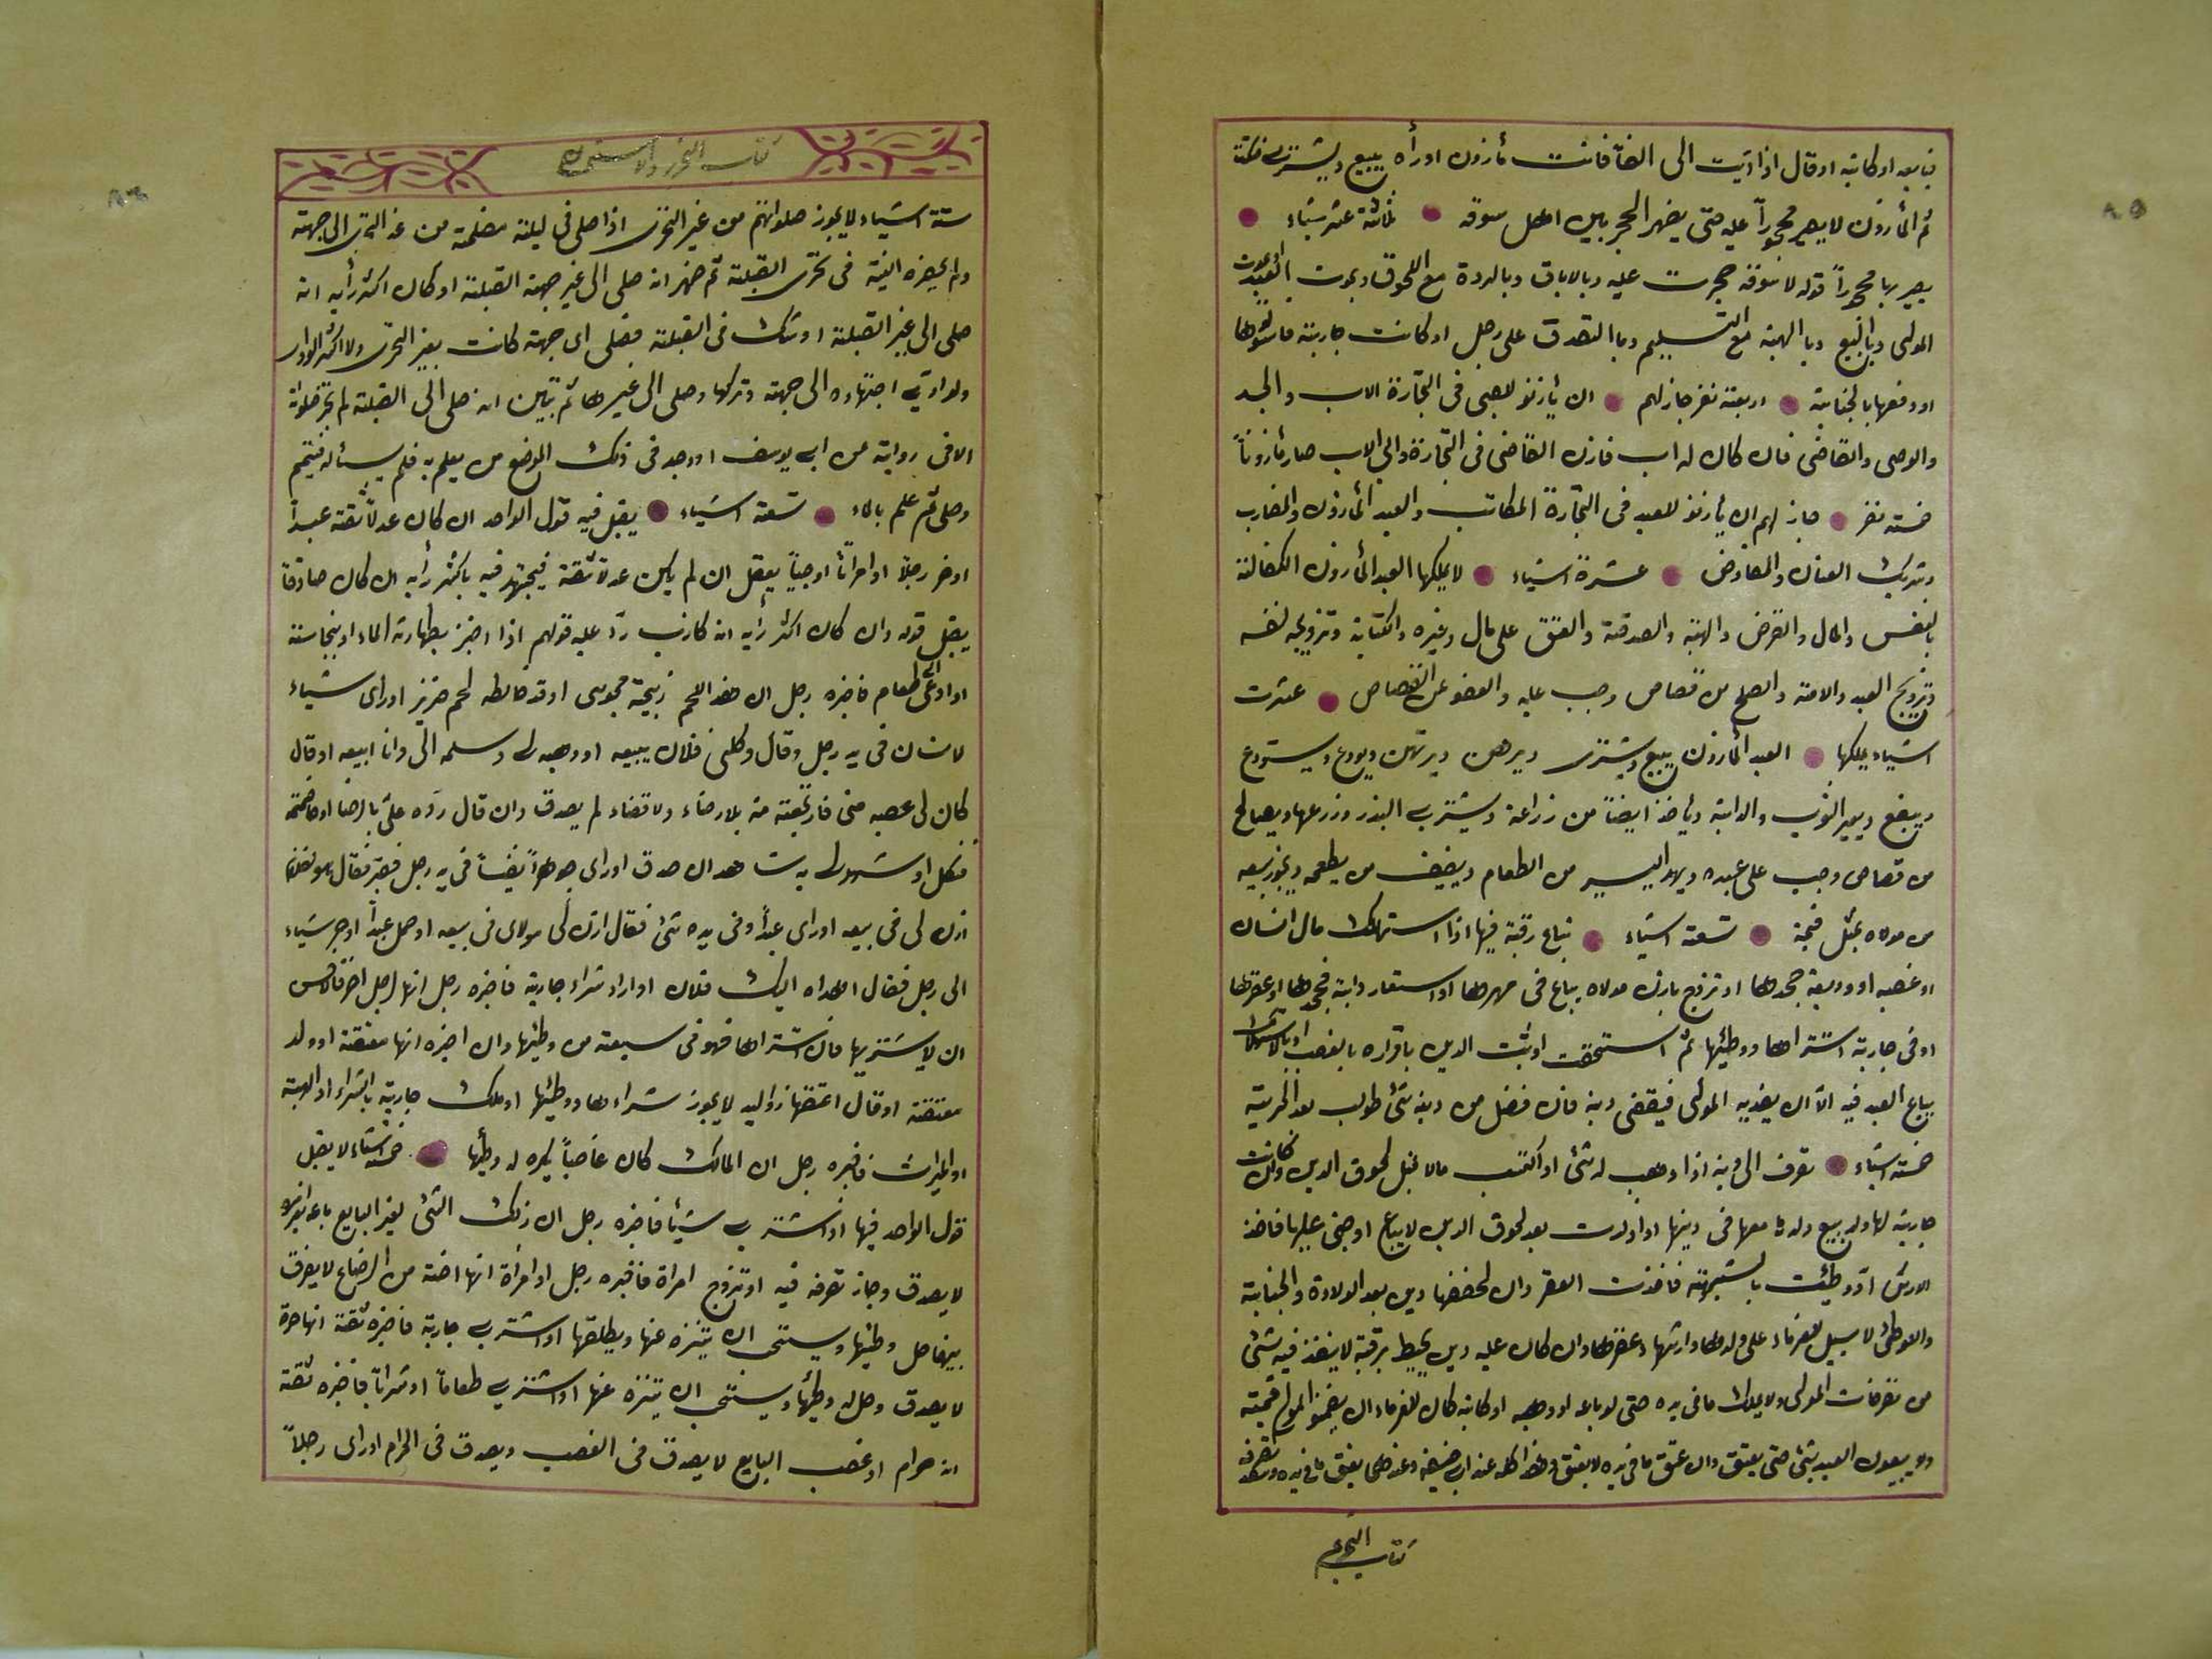 فبايعه او كاتبه او قال اذا اديت الى الفآ فانت مأذون او رأه يبيع ويشترى فسكت
ثم المأذون لا يصير محجوراً عليه حتى يضهر الحجر بين اهل سوقه ثلاثة عشر شياء
يصير بها محجوراً قوله لا سوقه حجرت عليه وبالاباق وبالردة مع اللحوق وبموت العبد او بموت
المولى وبالبيع وبا الهبة مع التسليم وبا التصدق على رجل او كانت جارية فاستولدها
او دفعها بالجناية اربعة نفر جاز لهم ان يأذنو للصبى فى التجارة الاب والجد
والوصى والقاضى فان كان له اب فاذن القاضى فى التجارة وابى الاب صار مأذوناً
خمسة نفر جاز لهم ان يأذنو للعبد فى التجارة المكاتب والعبد المأذون والمضارب
وشريك العنان والمفاوض عشرة اشياء لا يملكها العبد المأذون الكفالة
بالنفس والمال والقرض والهبة والصدقة والعتق على مال وغيره والكتابة وتزويجه لنفسه
وتزويج العبد والامة والصلح من قصاص وجب عليه والعفو عن القصاص عشرت
اشياء يملكها العبد المأذون يبيع ويشترى ويرهن ويرتهن ويودع ويستودع
ويبضع ويعير الثوب والدابة ويأخذ ايضاً من زراعة ويشترى البذر وزرعها ويصالح
من قصاص وجب على عبده ويهد اليسير من الطعام ويضيف من يطعمه ويجوز بيعه
من مولاه بمثل قيمة تسعة اشياء تباع رقبة فيها اذا استهلك مال انسان
او غصبه او وديعة جحدها او تزوج باذن مولاه يباع فى مهرها او استعار دابة فجحدها او عقرها
او فى جارية اشتراها ووطئيها ثم استحقت او ثبت الدين باقراره بالغصب او بالاستهلاك
يباع العبد فيه الآ ان يفديه المولى فيقضى دينه فان فضل من دينه شئ طولب بعد الحرية
خمسة اشياء تصرف الى دينه اذا وهب له شئ او اكتسب مالا قبل لحوق الدين وان كانت
جارية لها ولد يبيع ولدها معها فى دينها او اولدت بعد لحوق الدين لا يباع او جنى عليها فاخذ
الارش او وطئت بالشبهة فاخذت العقر وان لحقها دين بعد الولادة والجناية
والوطئ لا سبيل للغرماء على ولدها وارشها وعقرها وان كان عليه دين يحيط برقبة لا ينفذ فيه شئ
من تصرفات المولى ولا يملك ما فى يده حتى لو باعه او وهبه او كاتبه كان للغرماء ان يضمنو المولى قيمته
ولا يبيعون العبد بشئ حتى يعتق وان عتق ما فى يده لا يعتق وهذا كله عند ابى حنيفة وعندهما يعتق ما فى يده
كتاب التحرى
كتاب التحرى والاستحسان
ستة اشياء لا يجوز صلواتهم من غير التحرى اذا صلى فى ليلة مضلمة من غير التحرى الى جهة
ولم يحضره النية فى تحرى القبلة ثم ضهر انه صلى الى غير جهة القبلة او كان اكثر رأيه انه
صلى الى غير القبلة او شك فى القبلة فصلى اى جهة كانت بغير التحرى ولا اكثر الرأى
ولو ادى اجتهاده الى جهة وتركها وصلى الى غيرها ثم تبين انه صلى الى القبلة لم تجز صلوته
الا فى رواية عن ابى يوسف او وجد فى ذلك الموضع من يعلم به فلم يسئله فتيمم
وصلى ثم علم بالماء تسعة اشياء يقبل فيه قول الواحد ان كان عدلاً ثقة عبداً
او حر رجلاً او امرأتاً او صبياً يعقل ان لم يكن عدلا ثقة فيجتهد فيه باكثر رأيه ان كان صادقاً
يقبل قوله وان كان اكثر رأيه انه كاذب ردّ عليه قولهم اذا اخبر بطهارته الماء او بنجاسته
او ادعى الى طعام فاخبره رجل ان هذ اللحم ذبيحة مجوسى او قد خالطه لحم خنزير او راى شياء
لانسان فى يد رجل وقال وكلنى فلان يبيعه او وهبه لى وسلمه الى وانا ابيعه او قال
كان لى غصبه منى فارتجعته منه بلا رضاء ولا قضاء لم يصدق وان قال ردّه علىّ بالرضا او خاصمته
فنكل او شهد لى به شاهدان صدق او راى جوهراً نفيساً فى يد رجل فقير فقال
اذن لى فى بيعه او راى عبداً وفى يده شئ فقال اذن لى مولاى فى بيعه او حمل عبداً او حر شياء
الى رجل فقال اهداه اليك فلان او اراد شراء جارية فاخبره رجل انها لرجل اخر
ان لا يشتريها فان اشتراها فهو فى سعة من وطئها وان اخبره انها معتقة او ولد
معتقة او قال اعتقها ذو اليد لا يجوز شراءها ووطئها او ملك جارية بالشراء او الهبة
او الميراث فاخبره رجل ان المالك كان غاصباً يكره له وطيها خمسة اشياء لا يقبل
قول الواحد فيها اذا شترى شيئا فاخبره رجل ان ذلك الشئ لغير البايع باعه بغير امره
لا يصدق وجاز تصرفه فيه او تزوج امراة فاخبره رجل او امراة انها اخته من الرضاع لا يفرق
بينهما حل وطئها ويستحب ان يتنزه عنها ويطلقها او اشترى جارية فاخبره ثقة انها حرة
لا يصدق وحل له وطئها ويستحب ان يتنزه عنها او اشترى طعاماً او شراباً فاخبره ثقة
انه حرام او غصب البايع لا يصدق فى الغصب ويصدق فى الحرام او راى رجلاً